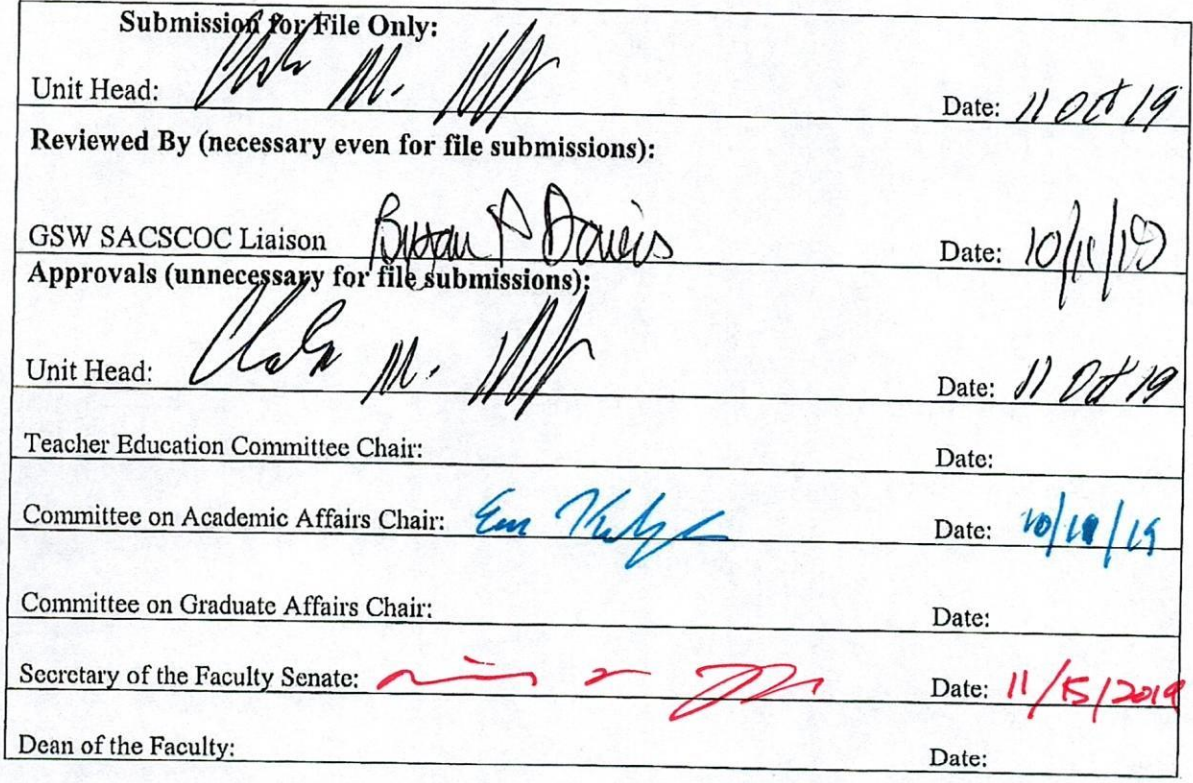 Submission for File Only:
Unit Head: Date: 11 Oct 19
Reviewed By (necessary even for file submissions):
GSW SACSCOC Liaison Bryan P Davis Date: 10/11/19
Approvals (unnecessary for file submissions):
Unit Head: M. Date: 11 Oct 19
Teacher Education Committee Chair: Date:
Committee on Academic Affairs Chair: Date:
Committee on Graduate Affairs Chair: Date:
Secretary of the Faculty Senate: Date: 11/15/2019
Dean of the Faculty: Date: